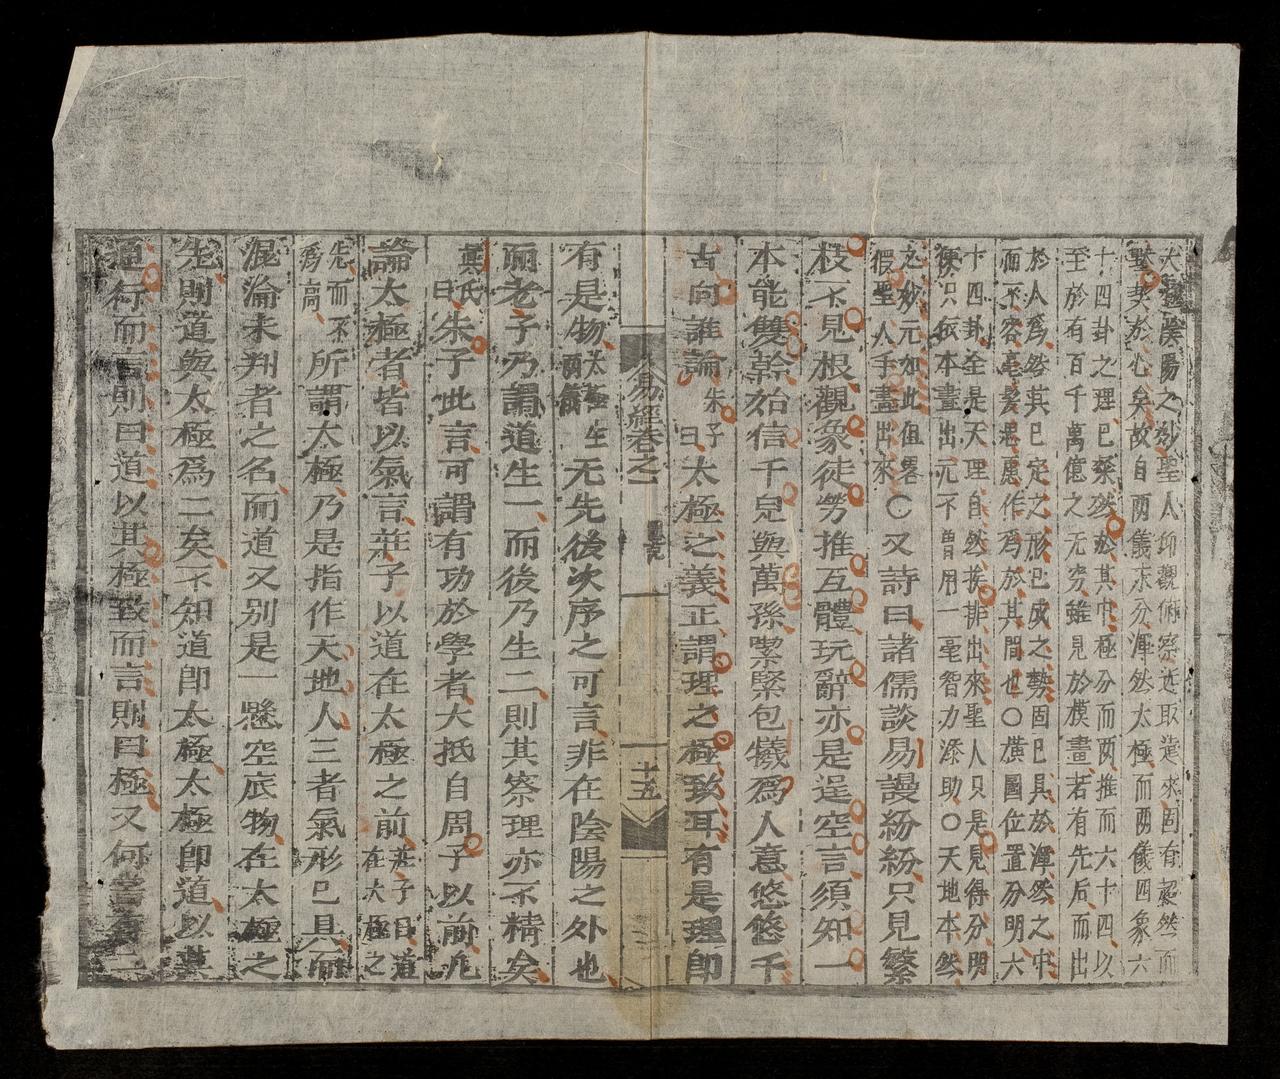 太極陰陽之妙聖人仰觀俯察近取遠求固有默然而
默契於心矣故自兩儀未分渾然太極而兩儀四象六
十四卦之理已粲然於其中極分而兩推而六十四以
至於有百千萬億之无穷雖見於模畫若有先后而出
於人爲然其已定之形已成之勢固已具於渾然之中
而不容毫髮思慮作爲於其間也〇橫圖位置分明六
十四卦全是天理自然挨排出來聖人只是見得分明
便只依本畫出元不曽用一毫智力添助〇天地本然
之妙元如此但畧
假聖人手畫出來〇又詩曰諸儒談易謾紛紛只見繁
枝不見根觀象徒勞推互體玩辭亦是逞空言須知一
本能雙幹始信千兒與萬孫喫緊包犧爲人意悠悠千
古向誰論朱子曰太極之義正謂理之極致耳有是理卽
易經卷之一
十五
有是物太極生兩儀无先後次序之可言非在陰陽之外也
而老子乃謂道生一而後乃生二則其察理亦不精矣
熊氏曰朱子此言可謂有功於學者大抵自周子以前凡
論太極者皆以氣言莊子以道在太極之前莊子曰道在太極之
先而不爲高所謂太極乃是指作天地人三者氣形已具而
混淪未判者之名而道又别是一懸空底物在太極之
先則道與太極爲二矣不知道卽太極太極卽道以其
通行而言則曰道以其極致而言則曰極又何嘗有二